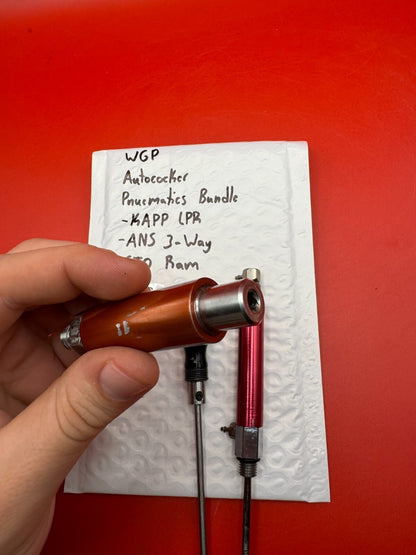 WGP
Autococker
Pnuematics Bundle
-KAPP LPR
-ANS 3-Way
Ram